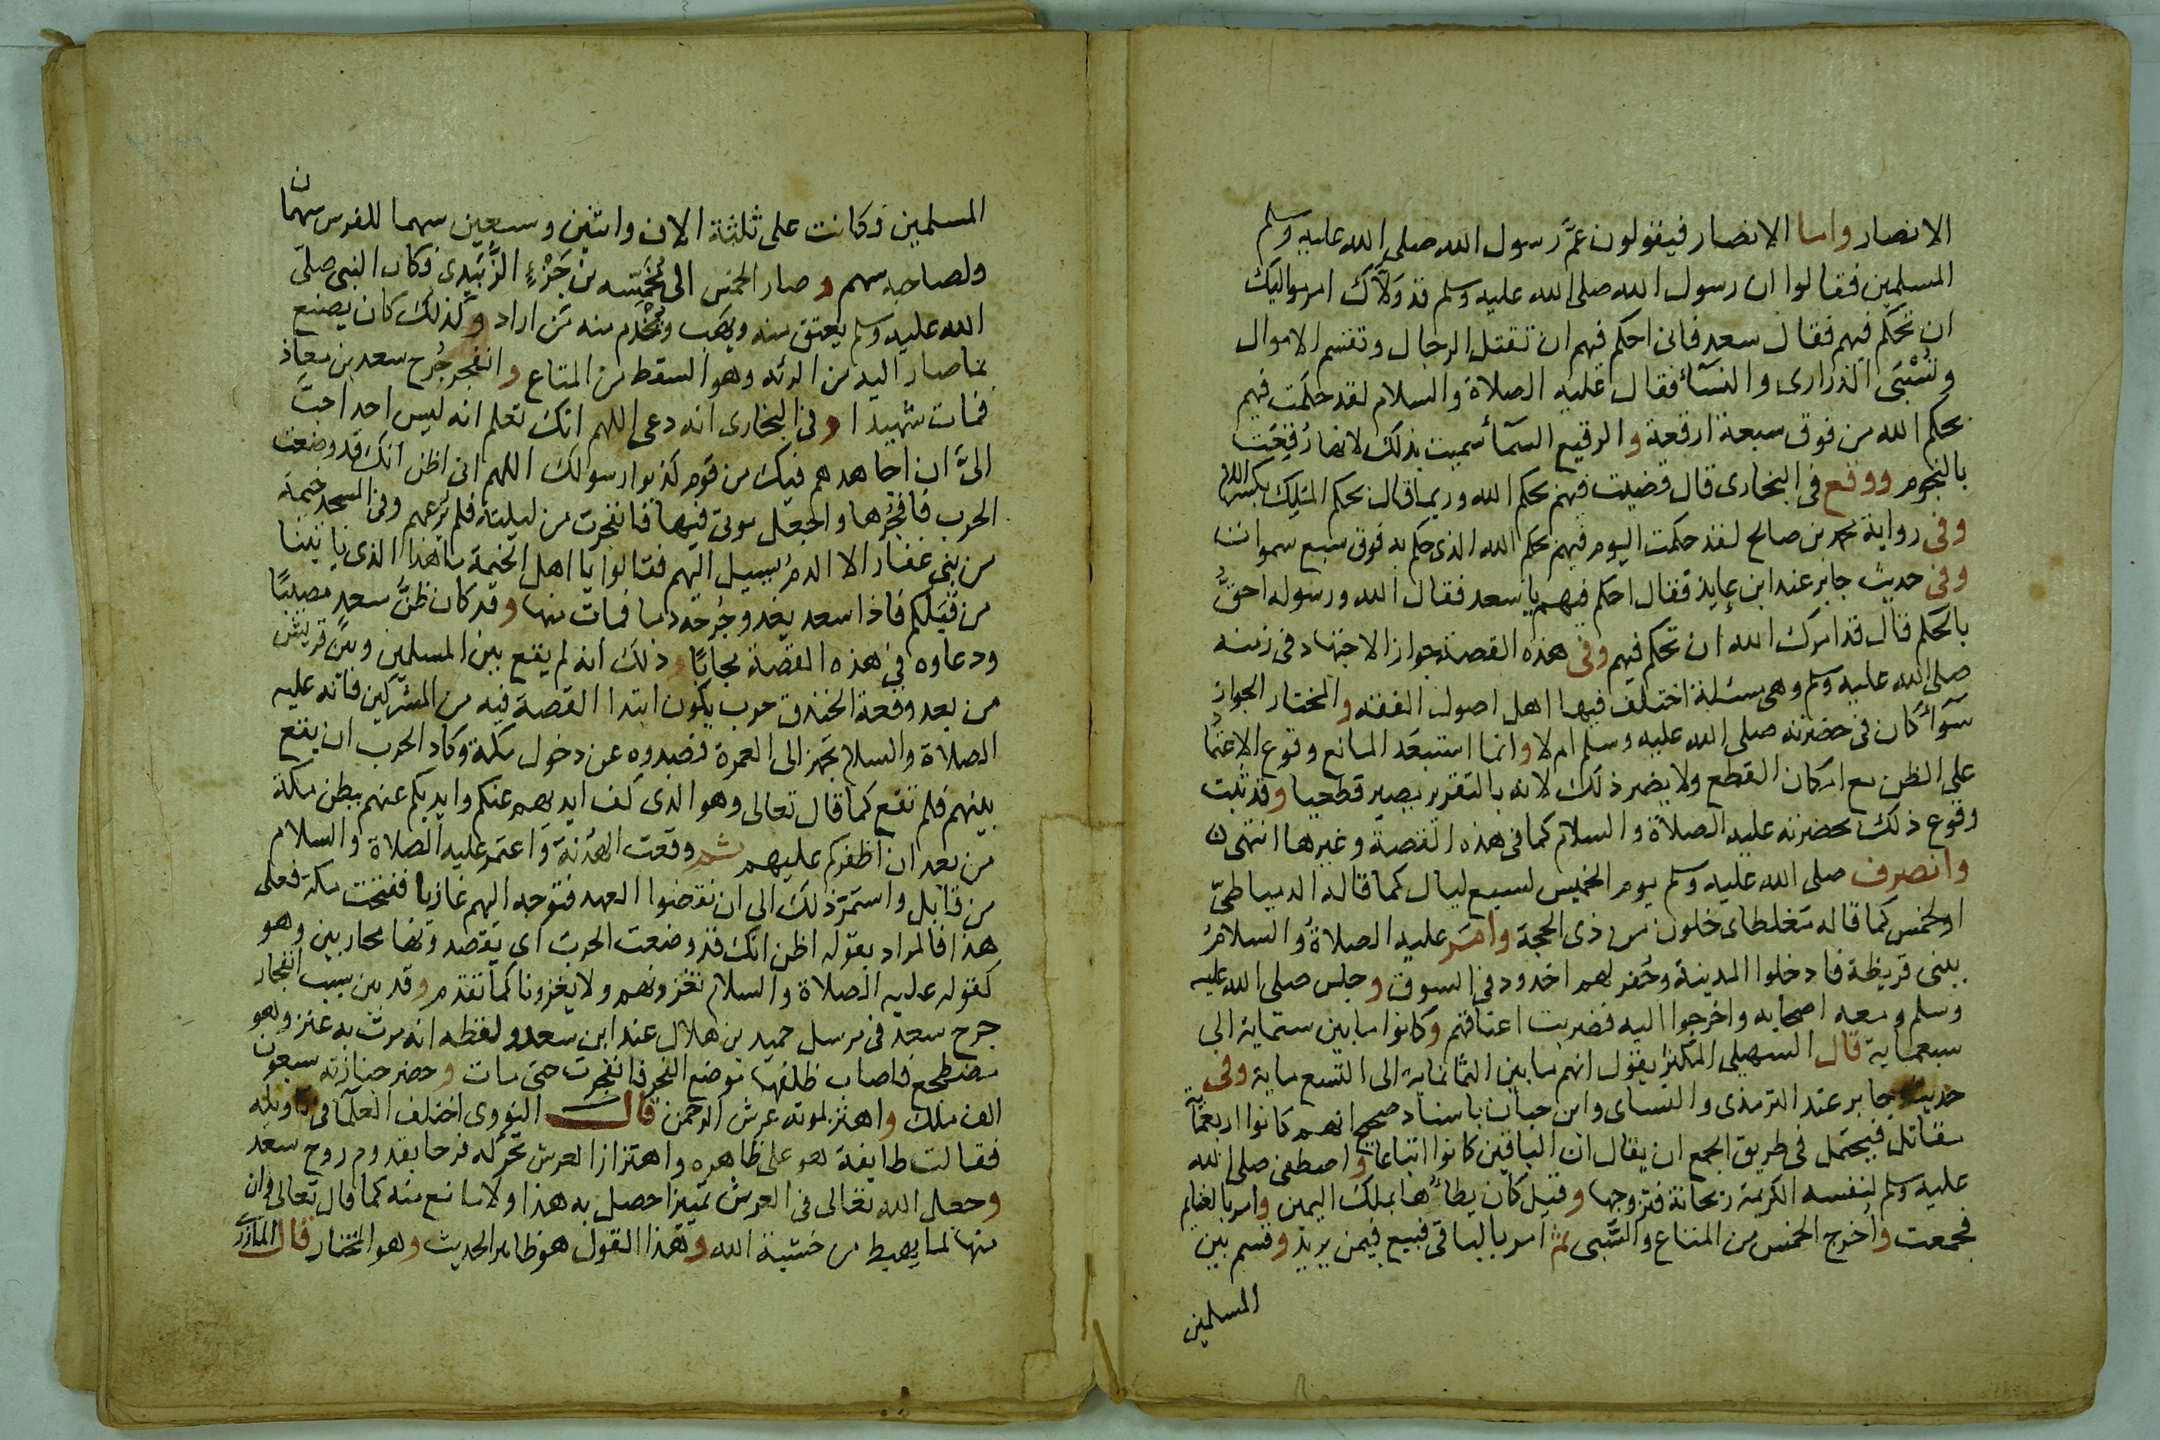 الانصار واما الانصار فيقولون عمَّ رسول الله صلى الله عليه وسلم
المسلمين فقالوا ان رسول الله صلى الله عليه وسلم قد وَلَّاك امر مواليك
ان تحكم فيهم فقال سعد فانى احكم فيهم ان تقتل الرجال وتقسم الاموال
وتُسْبَى الذرارى والنسآء فقال عليه الصلاة والسلام لقد حكمت فيهم
بحكم الله من فوق سبعة ارقعة والرقيع السمآء سميت بذلك لانها رُقِعَت
بالنجوم ووقع فى البخارى قال قضيت فيهم بحكم الله وربما قال بحكم الملِك بكسر اللام
وفى رواية محمد بن صالح لقد حكمت اليوم فيهم بحكم الله الذى حكم به فوق سبع سموات
وفى حديث جابر عند ابن عايذ فقال احكم فيهم يا سعد فقال الله ورسوله احقُّ
بالحكم قال قد امرك الله ان تحكم فيهم وفى هذه القصة جواز الاجتهاد فى زمنه
صلى الله عليه وسلم وهى مسئلة اختلف فيها اهل اصول الفقه والمختار الجواز
سوآء كان فى حضرته صلى الله عليه وسلم ام لا وانما استبعَد المانع وقوع الاعتماد
على الظن مع امكان القطع ولا يضر ذلك لانه بالتقرير يصير قطعيا وقد ثبت
وقوع ذلك بحضرته عليه الصلاة والسلام كما فى هذه القصة وغيرها انتهى
وانصرف صلى الله عليه وسلم يوم الخميس لسبع ليال كما قاله الدمياطىّ
او لخمس كما قاله مغلطاى خلون من ذى الحجة وامَر عليه الصلاةُ والسلامُ
ببنى قريظة فادخلوا المدينة وحُفر لهم اخدود فى السوق وجلس صلى الله عليه
وسلم ومعه اصحابه واخرجوا اليه فضربت اعناقهم وكانوا ما بين ستماية الى
سبعماية قال السهيلى المكثر يقول انهم ما بين الثمانماية الى التسع ماية وفى
حديث جابر عند الترمذى والنساى وابن حبان باسناد صحيح انهم كانوا اربعمآئة
مقاتل فيحتمل فى طريق الجمع ان يقال ان الباقين كانوا اتباعا واصطفى صلى الله
عليه وسلم لنفسه الكريمة ريحانة فتزوجها وقيل كان يطأها بملك اليمين وامر بالغنايم
فجمعت واُخرج الخمس من المتاع والسَّبى ثم امر بالباقى فبيع فيمن يريد وقسم بين
المسلمين
المسلمين فكانت على ثلثة الاف واثنين وسبعين سهما للفرس سهمان
ولصاحبه سهم وصار الخمس الى مَحْمِيَة بن جَزْءٍ الزُّبَيدى فكان النبى صلى
الله عليه وسلم يعتق منه ويهب ويُخْدِم منه مَن اراد وكذلك كان يصنع
بما صار اليه من الرثه وهو السقط من المتاع وانفجر جُرح سعد بن معاذ
فمات شهيدا وفى البخارى انه دعى اللهم انك تعلم انه ليس احد احبَّ
الىَّ ان اجاهدهم فيك من قوم كذبوا رسولك اللهم انى اظن انك قد وضعت
الحرب فافجُرها واجعل موتى فيها فانفجرت من ليلته فلم يَرُعهم وفى المسجد خيمة
من بنى غفار الا الدمُ يسيل اليهم فقالوا يا اهل الخيمة ما هذا الذى ياتينا
من قِبَلكم فاذا سعد يغذو جُرحه دما فمات منها وقد كان ظنُّ سعد مصيبًا
ودعاوه فى هذه القصة مجابًا وذلك انه لم يقع بين المسلمين وبين قريش
من بعد وقعة الخندق حرب يكون ابتدا القصة فيه من المشركين فانه عليه
الصلاة والسلام تجهز الى العمرة فصدوه عن دخول مكة وكاد الحرب ان يقع
بينهم فلم تقع كما قال تعالى وهو الذى كف ايديهم عنكم وايديكم عنهم ببطن مكة
من بعد ان اظفركم عليهم ثم وقعت الهُدنة واعتمر عليه الصلاة والسلام
من قابل واستمرّ ذلك الى ان نقضوا العهد فتوجه اليهم غازيا ففتحت مكة فعلى
هذا فالمراد بقوله اظن انك قد وضعت الحرب اى يقصدونها محاربين وهو
كقوله عليه الصلاة والسلام نغزوهم ولا يغزونا كما تقدم وقد بين سبب انفجار
جرح سعد فى مرسل حميد بن هلال عند ابن سعد ولفظه انه مرت به عنز وهو
مضطجع فاصاب ظلفها موضع الفجر فانفجرت حتى مات وحضر جنازته سبعون
الف ملك واهتز لموته عرش الرحمن قال النووى اختلف العلما فى تاويله
فقالت طايفة هو على ظاهره واهتزاز العرش تحركه فرحا بقدوم روح سعد
وجعل الله تعالى فى العرش تمييزا حصل به هذا ولا مانع منه كما قال تعالى وان
منها لما يهبط من خشية الله وهذا القول هو ظاهر الحديث وهو المختار قال المازرى